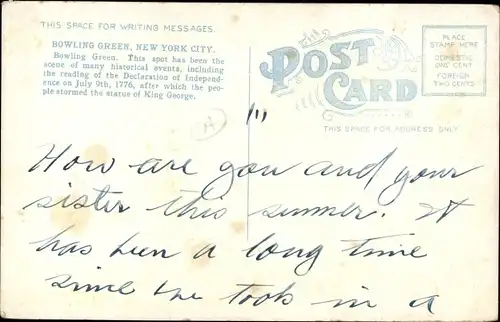 THIS SPACE FOR WRITING MESSAGES.
BOWLING GREEN, NEW YORK CITY.
Bowling Green. This spot has been the
scene of many historical events, including
the reading of the Declaration of Independ-
ence on July 9th, 1776, after which the peo-
ple stormed the statue of King George.
POST
CARD
THIS SPACE FOR ADDRESS ONLY
PLACE
STAMP HERE
DOMESTIC
ONE CENT
FOREIGN
TWO CENTS
How are you and your
sister this summer. It
has been a long time
since we took in a